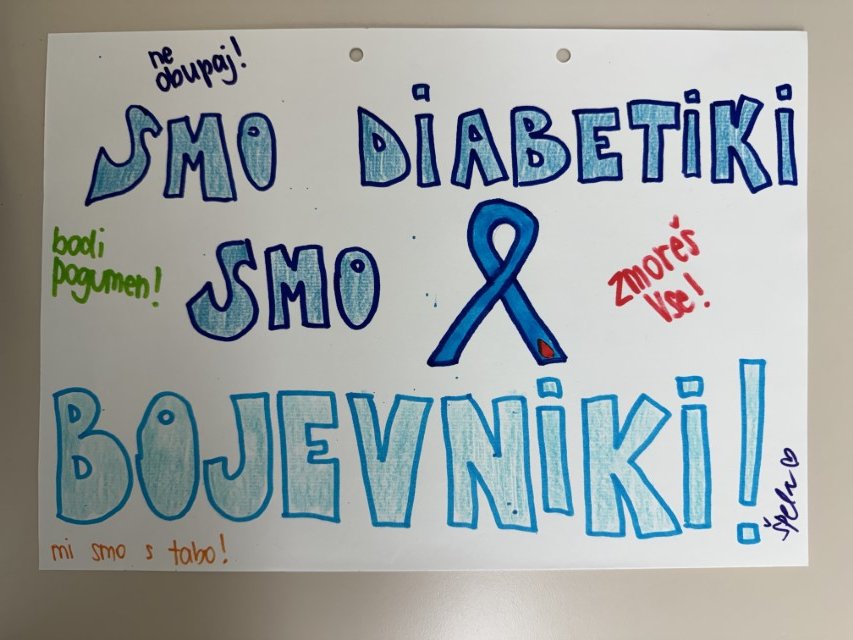 ne
obupaj!
SMO DiABETiKi
bodi
pogumen!
SMO
zmoreš
vse!
BOJEVNiKi!
mi smo s tabo!
Špela